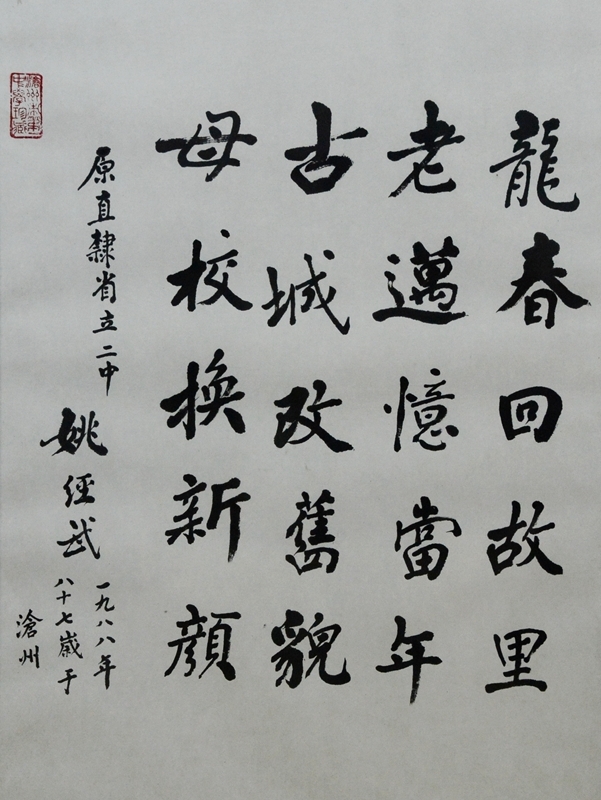 龍春回故里
老邁憶當年
古城改舊貌
母校換新顔
原直隸省立二中
姚經武
一九八八年
八十七歲于
滄州